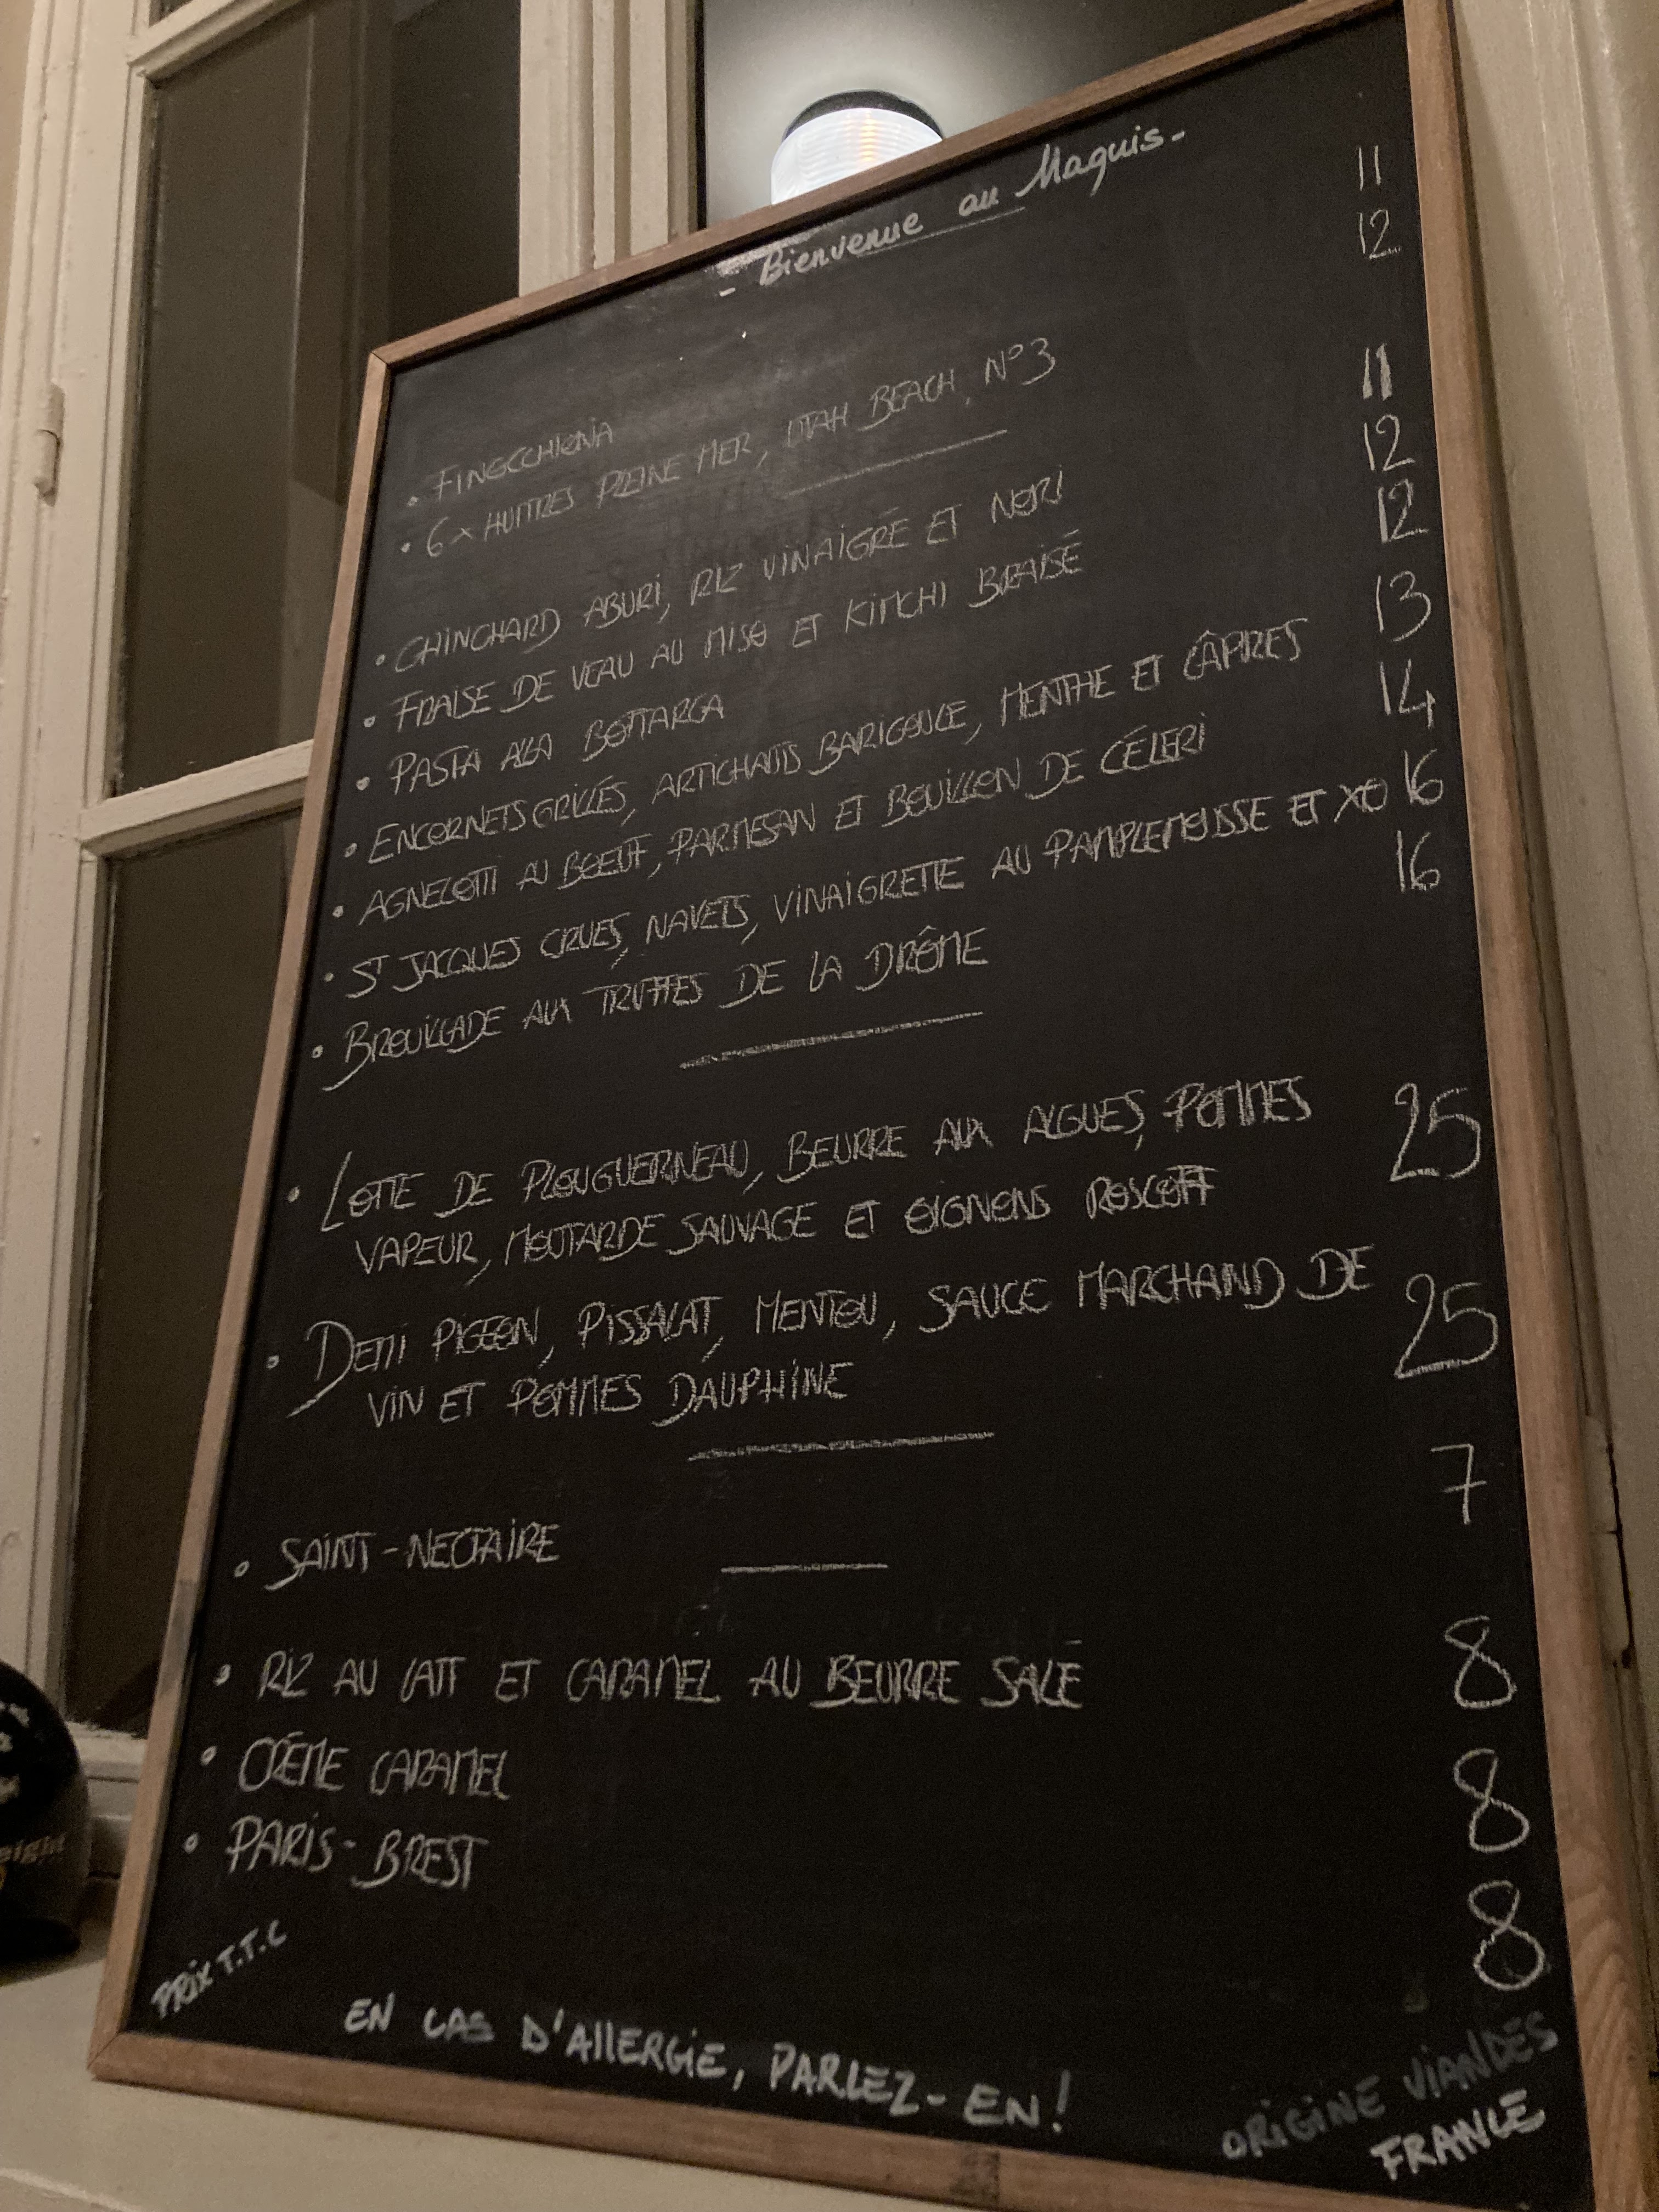 - Bienvenue au Maquis -
• FINOCCHIONA 11
• 6 x HUITRES PLEINE MER, UTAH BEACH, N°3 12
• CHINCHARD ABURI, RIZ VINAIGRÉ ET NORI 11
• FRAISE DE VEAU AU MISO ET KIMCHI BRAISÉ 12
• PASTA ALLA BOTTARGA 12
• ENCORNETS GRILLÉS, ARTICHAUTS BARIGOULE, MENTHE ET CÂPRES 13
• AGNELOTTI AU BOEUF, PARMESAN ET BOUILLON DE CÉLERI 14
• ST JACQUES CRUES, NAVETS, VINAIGRETTE AU PAMPLEMOUSSE ET XO 16
• BROUILLADE AUX TRUFFES DE LA DRÔME 16
• LOTTE DE PLOUGUERNEAU, BEURRE AUX ALGUES, POMMES 25
VAPEUR, MOUTARDE SAUVAGE ET OIGNONS ROSCOFF
• DEMI PIGEON, PISSALAT, MENTOU, SAUCE MARCHAND DE 25
VIN ET POMMES DAUPHINE
• SAINT-NECTAIRE 7
• RIZ AU LAIT ET CARAMEL AU BEURRE SALÉ 8
• CRÈME CARAMEL 8
• PARIS-BREST 8
PRIX T.T.C
EN CAS D'ALLERGIE, PARLEZ-EN !
ORIGINE VIANDES
FRANCE